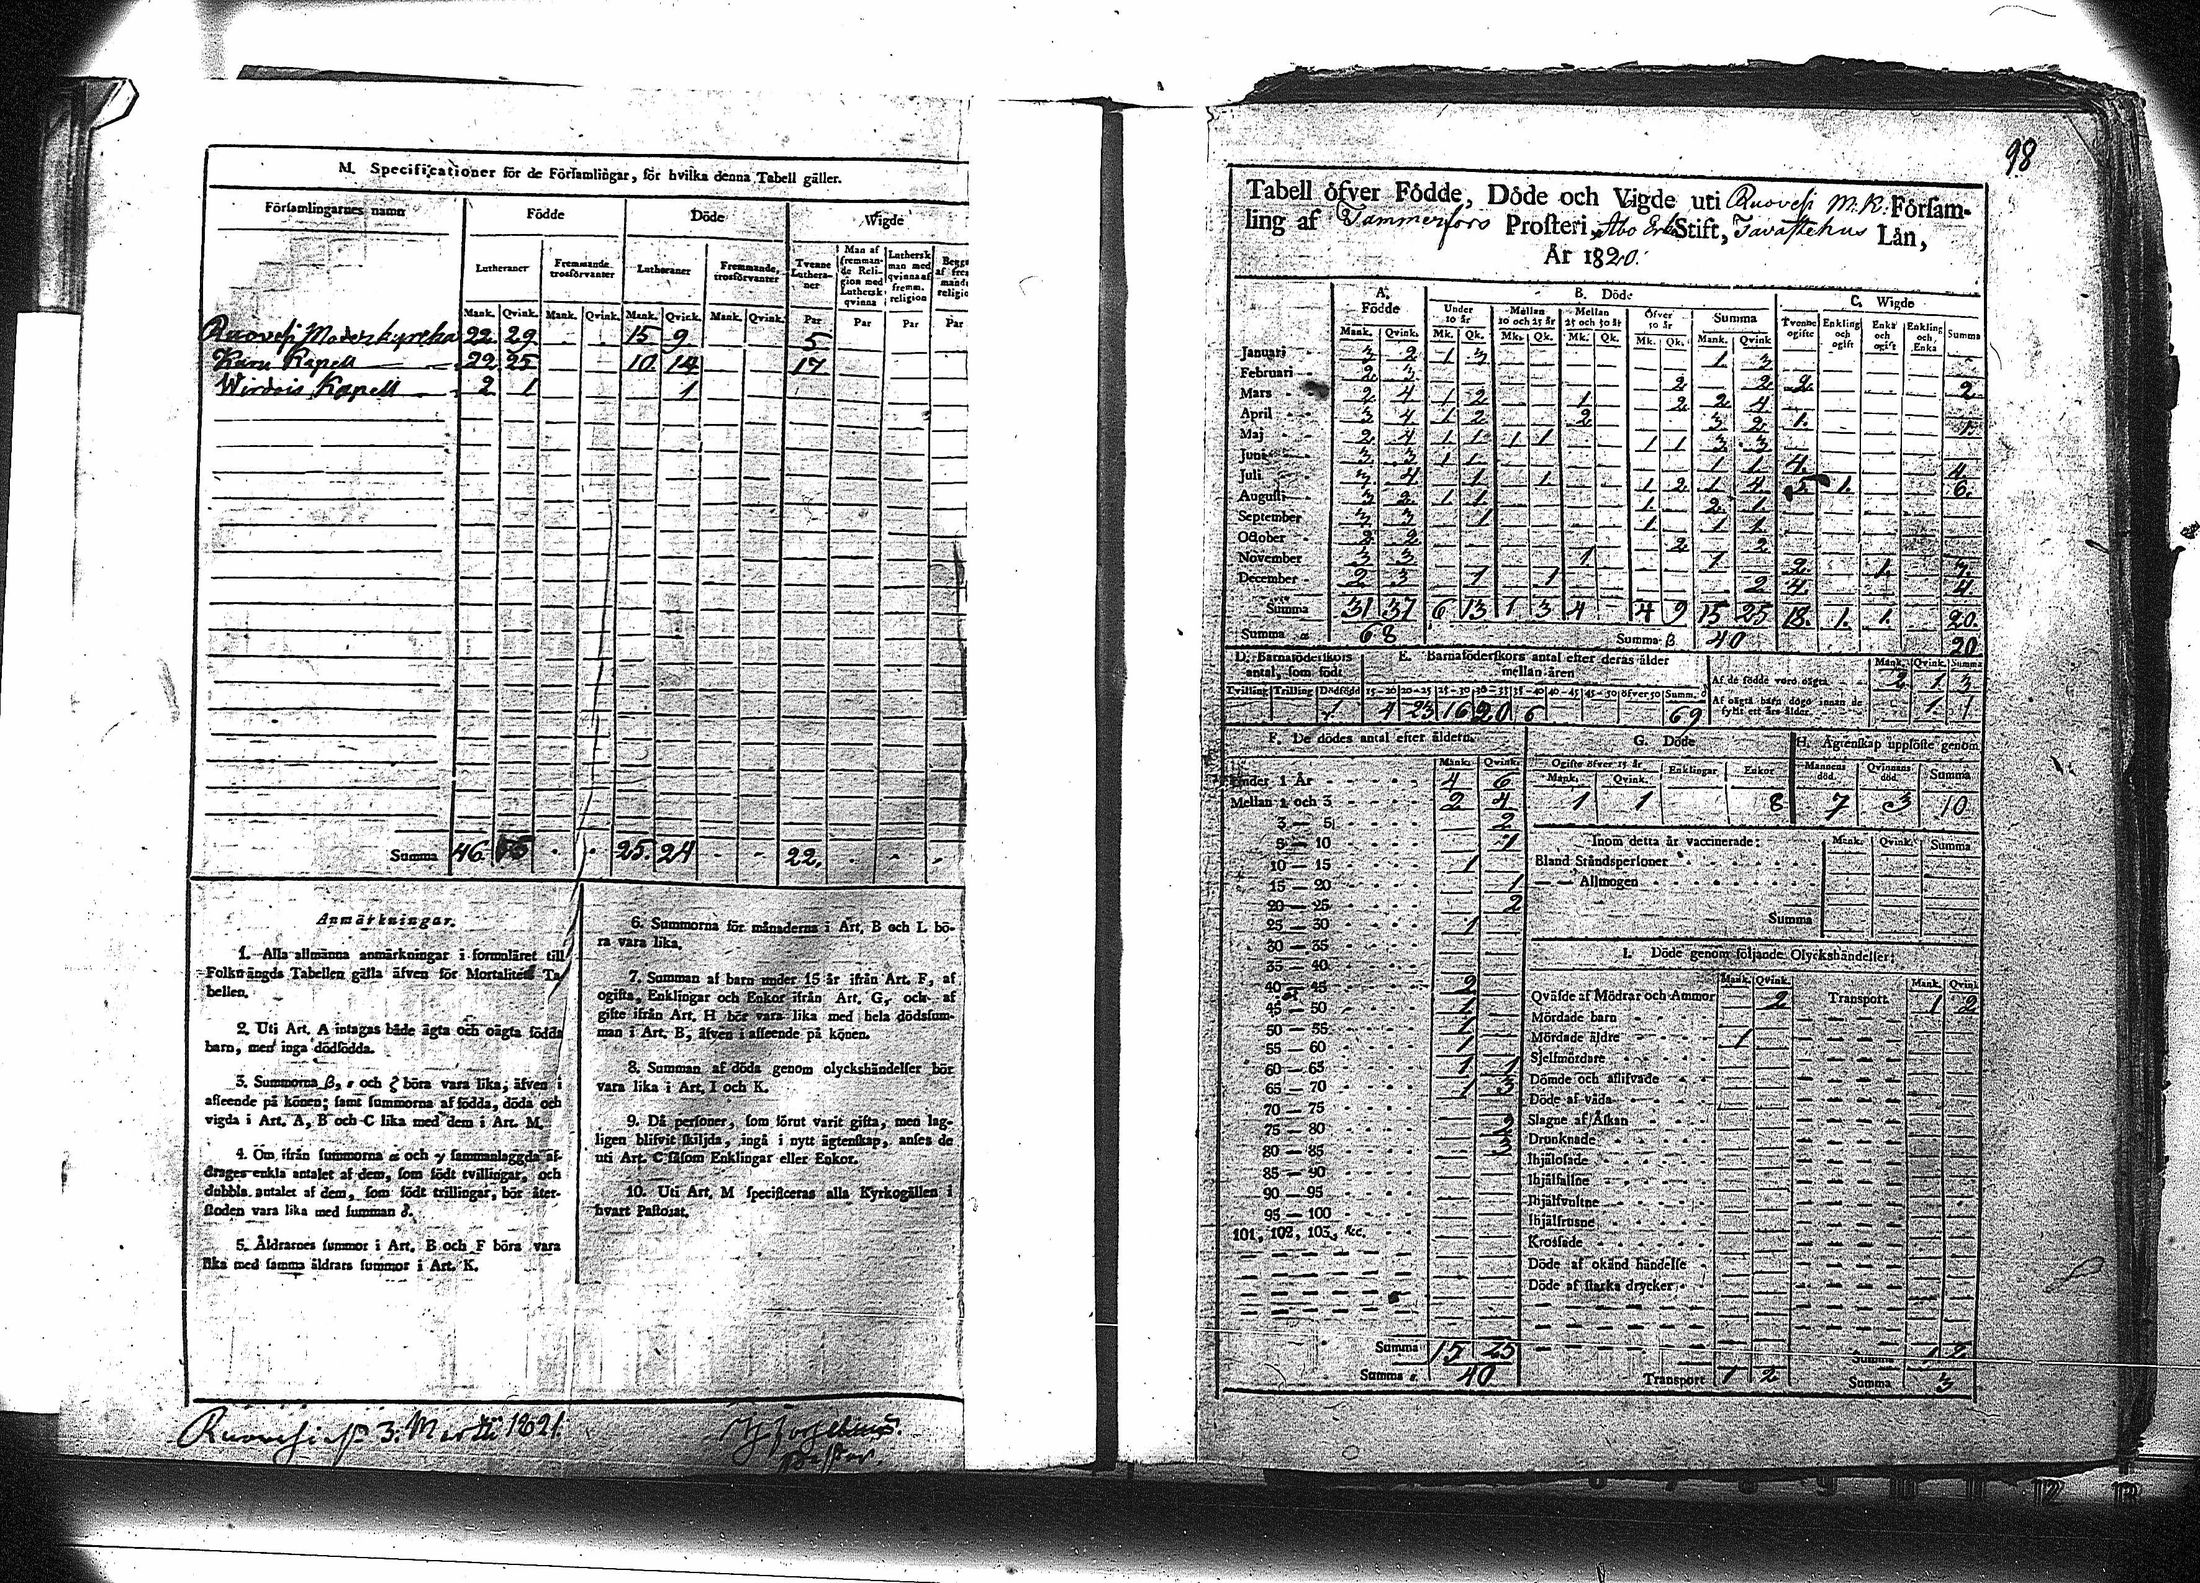 M. Specificationer för de Församlingar, för hvilka denna Tabell gäller.
Församlingarnes namn Födde Döde Wigde
Lutheraner Fremmande trosförvanter Lutheraner Fremmande trosförvanter Tvenne Lutheraner Man af fremmande Religion med Luthersk qvinna Luthersk man med qvinna af fremm. religion
Mank. Qvink. Mank. Qvink. Mank. Qvick. Mank. Qvink. Par Par Par Par
Ruovesi Moderkyrka 22 29 15 9 5
Kuru Kapell 22 25 10 14 17
Wirdois Kapell 2 1 1
Summa 46 55 25. 24 22.
Anmärkningar.
1. Alla allmänna anmärkningar i formuläret till
Folkmängds Tabellen gälla äfven för Mortalitets Ta-
bellen.
2. Uti Art. A intagas både ägta och oägta födda
barn, men inga dödfödda.
3. Summorna β, ε och ζ böra vara lika, äfven i
afseende på könen; samt summorna af födda, döda och
vigda i Art. A, B och C lika med dem i Art. M.
4. Om ifrån summorna α och γ sammanlaggda af-
drages enkla antalet af dem, som födt tvillingar, och
dubbla antalet af dem, som födt trillingar, bör åter-
stoden vara lika med summan δ.
5. Åldrarnes summor i Art. B och F böra vara
lika med samma åldrars summor i Art. K.
6. Summorna för månaderna i Art. B och L bö-
ra vara lika.
7. Summan af barn under 15 år ifrån Art. F, af
ogifta, Enklingar och Enkor ifrån Art. G, och af
gifte ifrån Art. H bör vara lika med hela dödssum-
man i Art. B, äfven i afseende på könen.
8. Summan af döda genom olyckshändelser bör
vara lika i Art. I och K.
9. Då personer, som förut varit gifta, men lag-
ligen blifvit skiljda, ingå i nytt ägtenskap, anses de
uti Art. C såsom Enklingar eller Enkor.
10. Uti Art. M specificeras alla Kyrkogällen i
hvart Pastorat.
3. Martii 1821.
98
Tabell öfver Födde, Döde och Vigde uti Ruovesi M.K. Försam-
ling af Tammerfors Prosteri, Åbo Erke Stift, Tavastehus Län,
År 1820.
A. Födde B. Döde C. Wigde
Under 10 år Mellan 10 och 25 år Mellan 25 och 50 år Öfver 50 år Summa Tvenne ogifte Enkling och ogift Enka och ogift Enkling och Enka Summa
Mank. Qvink. Mk. Qk. Mk. Qk. Mk. Qk. Mk. Qk. Mank. Qvink
Januari 3 2 1 3 1 3
Februari 2 3 2 2 2 2
Mars 2 4 1 2 1 2 2 4
April 3 4 1 2 2 3 2 1. 1.
Maj 2 4 1 1 1 1 1 1 3 3
Juni 3 3 1 1 1 1 4 4
Juli 3 4 1 1 1 2 1 4 5 1. 6.
Augusti 3 2 1 1 1 2 1
September 3 3 1 1 1 1
October 2 2 2 2
November 3 3 1 1 2 1 3
December 2 3 1 1 2 4 4
Summa 31 37 6 13 1 3 4 4 9 15 25 18. 1. 1. 20.
Summa α 68 Summa β 40 20
D. Barnaföderskors antal, som födt
Tvilling Trilling Dödfödd
1
E. Barnaföderskors antal efter deras ålder mellan åren
15-20 20-25 25-30 30-35 35-40 40-45 45-50 öfver 50 Summ. δ
4 23 16 20 6 69
Mank. Qvink. Summa
Af de födde voro oägta 2 1 3
Af oägta barn dogo innan de fyllt ett års ålder 1 1
F. De dödes antal efter åldern.
Mank. Qvink.
Under 1 År 4 6
Mellan 1 och 3 2 4
3 — 5 2
5 — 10 1
10 — 15 1
15 — 20 1
20 — 25 2
25 — 30 1
30 — 35
35 — 40
40 — 45 2
45 — 50 1
50 — 55 1
55 — 60 1
60 — 65 1 1
65 — 70 1 3
70 — 75
75 — 80 2
80 — 85 3
85 — 90
90 — 95
95 — 100
101, 102, 103, &c.
Summa 15 25
Summa ε. 40
G. Döde
Ogifte öfver 15 år Enklingar Enkor
Mank. Qvink.
1 1 8
H. Ägtenskap upplöste genom
Mannens död. Qvinnans död. Summa
7 3 10
Inom detta år vaccinerade: Mank. Qvink. Summa
Bland Ståndspersoner
— — Allmogen
Summa
I. Döde genom följande Olyckshändelser:
Mank. Qvink. Mank. Qvink
Qväfde af Mödrar och Ammor 2 Transport 1 2
Mördade barn
Mördade äldre 1
Sjelfmördare
Dömde och aflifvade
Döde af våda
Slagne af Åskan
Drunknade
Ihjälosade
Ihjälfallne
Ihjälsvultne
Ihjälfrusne
Krossade
Döde af okänd händelse
Döde af starka drycker
Summa 1 2
Transport 1 2 Summa 3